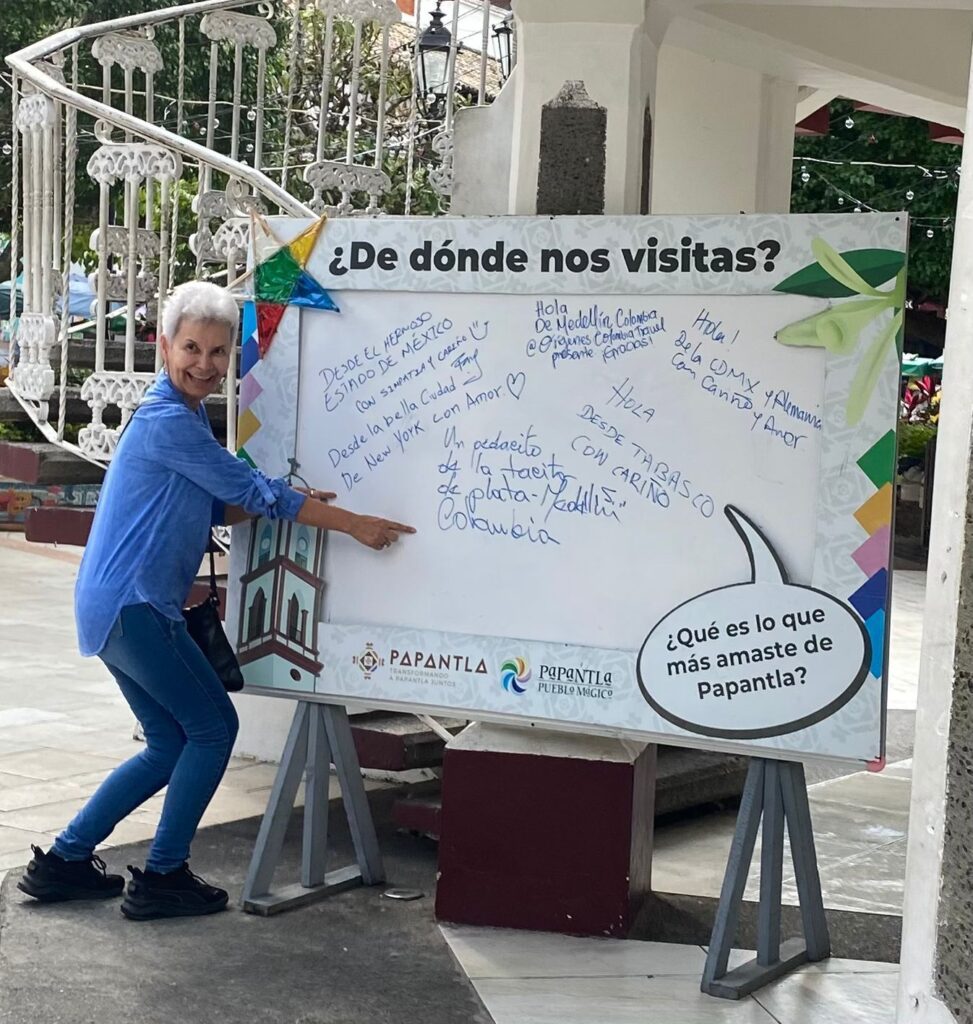 ¿De dónde nos visitas?
DESDE EL HERMOSO
ESTADO DE MÉXICO
CON SIMPATIA Y CARIÑO
Desde la bella Ciudad
De New York con Amor
Hola
De Medellín Colombia
@OrigenesColombiaTravel
presente
Hola!
De la CDMX y Alemania
Con Cariño y Amor
HOLA
DESDE TABASCO
CON CARIÑO
Un pedacito
de la tacita
de plata-Medellín
Colombia
PAPANTLA
TRANSFORMANDO
A PAPANTLA JUNTOS
PAPANTLA
PUEBLO MÁGICO
¿Qué es lo que
más amaste de
Papantla?